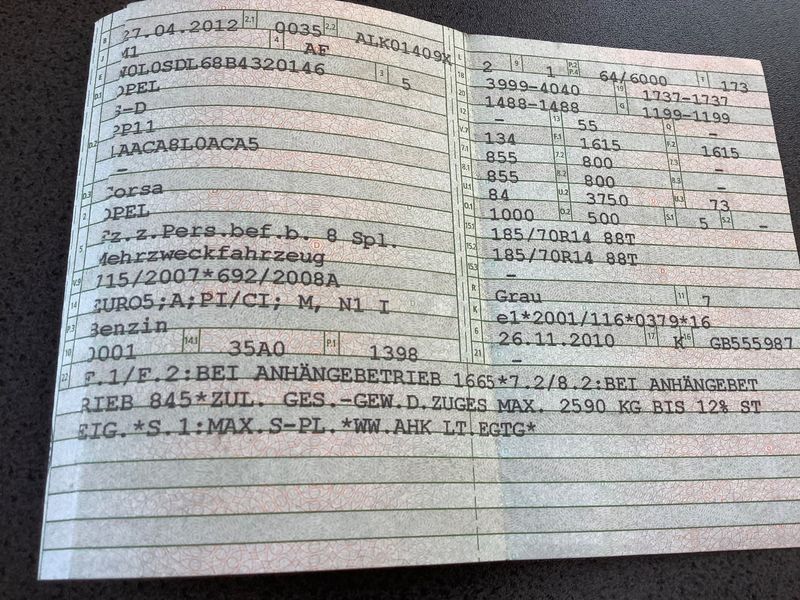 B 27.04.2012 2.1 0035 2.2 ALK01409X
J M1 4 AF
E W0L0SDL68B4320146 3 5
D.1 OPEL
S-D
D.2 PP11
AACA8L0ACA5
–
D.3 Corsa
2 OPEL
5 Fz.z.Pers.bef.b. 8 Spl.
Mehrzweckfahrzeug
V.9 715/2007*692/2008A
14 EURO5;A;PI/CI; M, N1 I
P.3 Benzin
10 0001 14.1 35A0 P.1 1398
L 2 9 1 P.2 P.4 64/6000 T 173
18 3999-4040 19 1737-1737
20 1488-1488 G 1199-1199
12 – 13 55 Q –
V.7 134 F.1 1615 F.2 1615
7.1 855 7.2 800 7.3 –
8.1 855 8.2 800 8.3 –
U.1 84 U.2 3750 U.3 73
O.1 1000 O.2 500 S.1 5 S.2 –
15.1 185/70R14 88T
15.2 185/70R14 88T
15.3 –
R Grau 11 7
K e1*2001/116*0379*16
6 26.11.2010 17 K 16 GB555987
21 –
22 F.1/F.2:BEI ANHÄNGEBETRIEB 1665*7.2/8.2:BEI ANHÄNGEBET
RIEB 845*ZUL. GES.-GEW.D.ZUGES MAX. 2590 KG BIS 12% ST
EIG.*S.1:MAX.S-PL.*WW.AHK LT.EGTG*